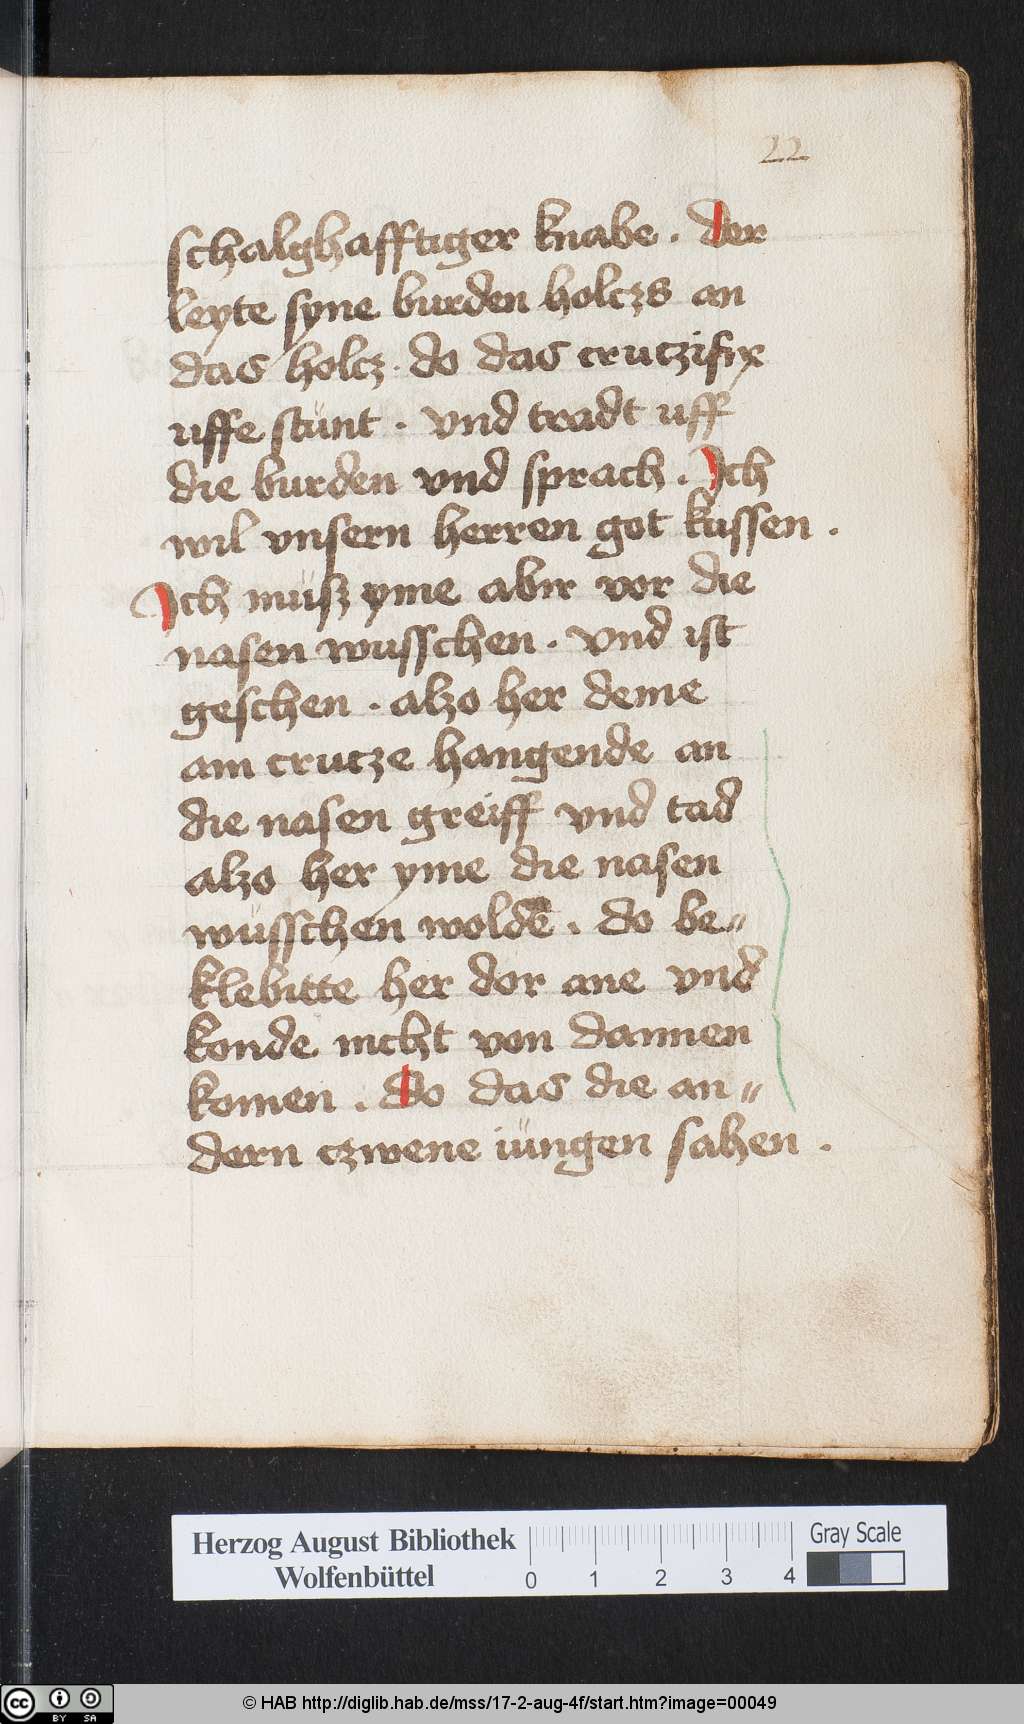 22
schalghafftiger knabe . der
leyte syne burden holczs an
das holcz . do das crutzifix
uffe stünt . vnd tradt uff
die burden vnd sprach . Ich
wil vnsern herren got kussen .
Ich müsz yme abir vor die
nasen wusschen . vnd ist
geschen . alzo her deme
am crutze hangende an
die nasen greiff vnd tad
alzo her yme die nasen
wüsschen wolde . do be〃
klebitte her dor ane vnd
konde nicht von dannen
komen . do das die an〃
dern czwene iüngen sahen .
Herzog August Bibliothek
Wolfenbüttel
0 1 2 3 4
Gray Scale
cc BY SA
© HAB http://diglib.hab.de/mss/17-2-aug-4f/start.htm?image=00049